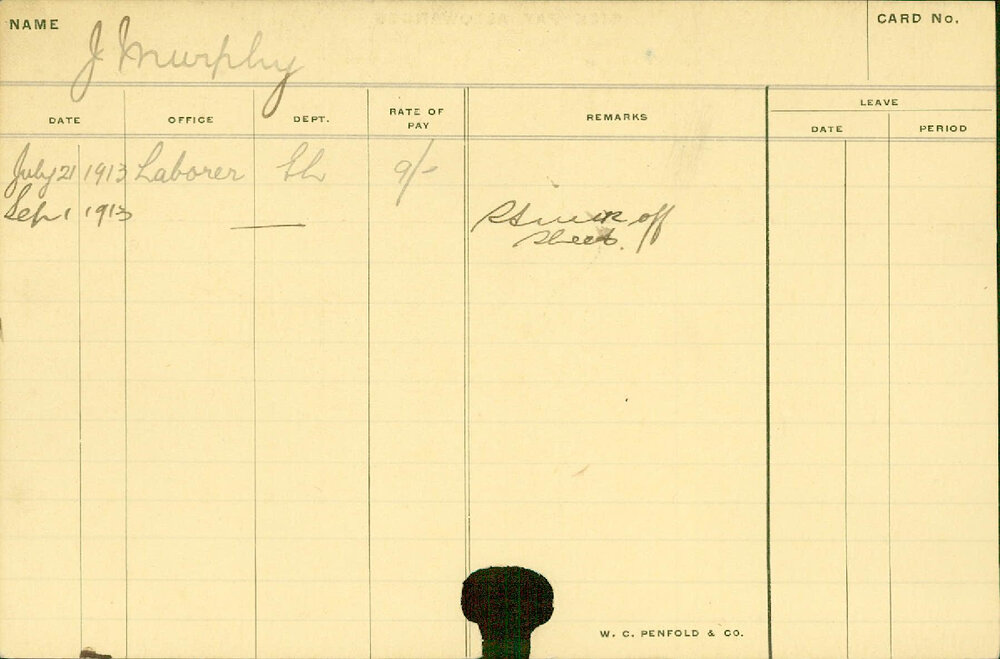 NAME
J Murphy
CARD No.
DATE
OFFICE
DEPT.
RATE OF PAY
REMARKS
LEAVE
DATE
PERIOD
July 21 1913 Laborer 9/-
Sep 1 1913 — off
Sheet.
W. C. PENFOLD & CO.